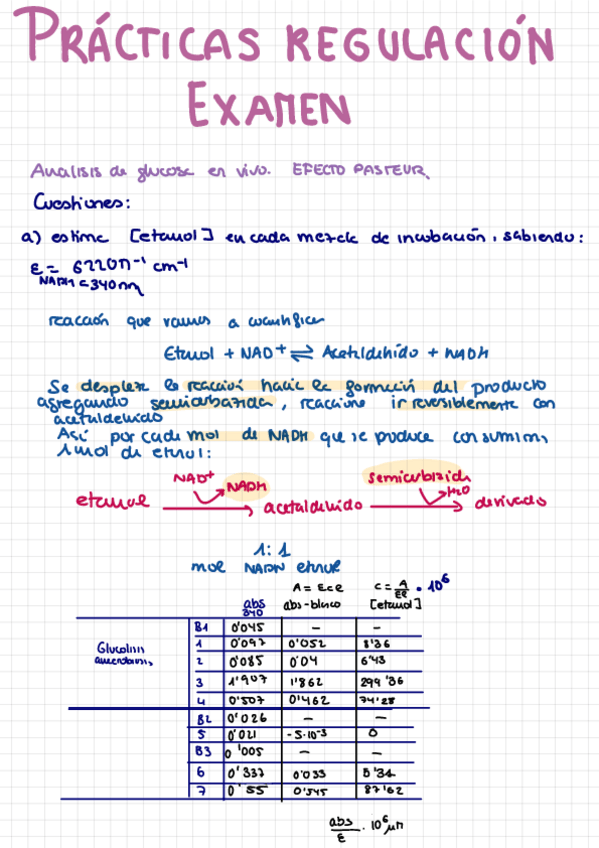 PRÁCTICAS REGULACIÓN
EXAMEN
Analisis de glucosa en vivo. EFECTO PASTEUR.
Cuestiones:
a) estima [etanol] en cada mezcla de incubación, sabiendo:
ε = 6220 M⁻¹ cm⁻¹
NADH λ=340nm
reacción que vamos a cuantificar
Etanol + NAD⁺ ⇌ Acetaldehído + NADH
Se desplaza la reacción hacia la formación del producto
agregando semicarbazida, reacciona irreversiblemente con
acetaldehído
Así por cada mol de NADH que se produce consumimos
1 mol de etanol:
etanol NAD⁺ NADH acetaldehido semicarbizida H₂O derivado
1:1
mol NADH etanol
A = Ecl C = A/εl · 10⁶
abs 340 abs-blanco [etanol]
B1 0'045 — —
Glucolisis anaerobiosis 1 0'097 0'052 8'36
2 0'085 0'04 6'43
3 1'907 1'862 299'36
4 0'507 0'462 74'28
B2 0'026 — —
5 0'021 -5·10⁻³ 0
B3 0'005 — —
6 0'337 0'033 5'34
7 0'55 0'545 87'62
abs/ε · 10⁶ μM